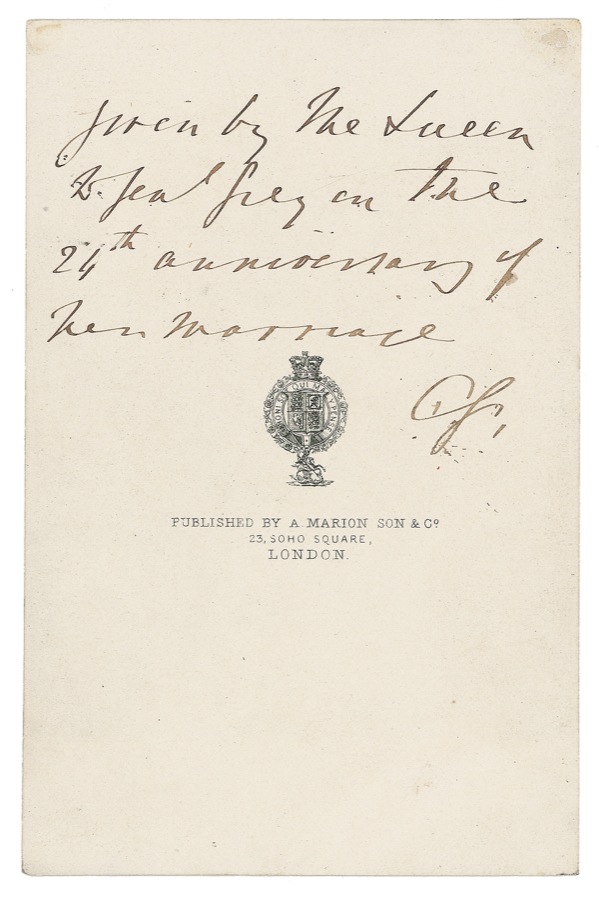 given by the Queen
to Genl Grey on the
24th anniversary of
her marriage
CG.
HONI SOIT QUI MAL Y PENSE
PUBLISHED BY A. MARION SON & Co
23, SOHO SQUARE,
LONDON.